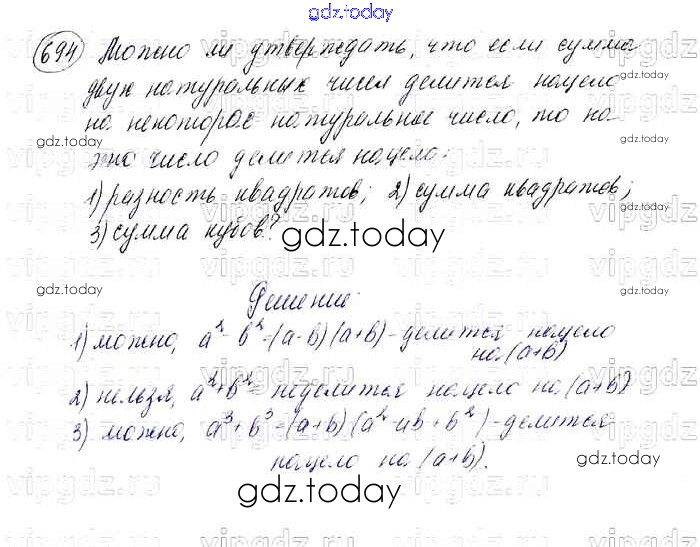 gdz.today
694 Можно ли утверждать, что если сумма
двух натуральных чисел делится нацело
на некоторое натуральное число, то на
gdz.today
это число делится нацело:
1) разность квадратов; 2) сумма квадратов;
3) сумма кубов?
gdz.today
gdz.today
Решение:
1) можно, a² - b² = (a-b)(a+b) - делится нацело
на (a+b)
2) нельзя, a² + b² - неделится нацело на (a+b)
3) можно, a³ + b³ = (a+b)(a² - ab + b²) - делится
нацело на (a+b).
gdz.today
gdz.today